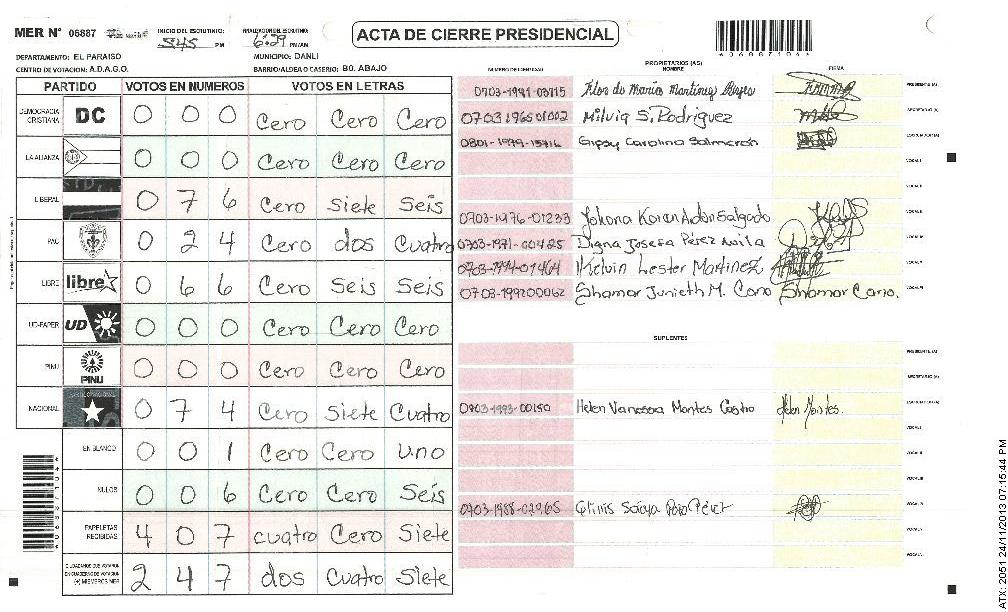 MER N° 06887 INICIO DEL ESCRUTINIO: 545 PM FINALIZACION DEL ESCRUTINIO: 6:29 PM/AM
ACTA DE CIERRE PRESIDENCIAL
*06887104*
DEPARTAMENTO: EL PARAISO MUNICIPIO: DANLI
CENTRO DE VOTACION: A.D.A.G.O. BARRIO/ALDEA O CASERIO: BO. ABAJO
PARTIDO VOTOS EN NUMEROS VOTOS EN LETRAS
DEMOCRACIA CRISTIANA DC 0 0 0 Cero Cero Cero
LA ALIANZA 0 0 0 Cero Cero Cero
LIBERAL 0 7 6 Cero Siete Seis
PAC 0 2 4 Cero dos Cuatro
LIBRE libre 0 6 6 Cero Seis Seis
UD-FAPER UD 0 0 0 Cero Cero Cero
PINU PINU 0 0 0 Cero Cero Cero
NACIONAL 0 7 4 Cero Siete Cuatro
EN BLANCO 0 0 1 Cero Cero Uno
NULOS 0 0 6 Cero Cero Seis
PAPELETAS RECIBIDAS 4 0 7 cuatro Cero Siete
CIUDADANOS QUE VOTARON EN CUADERNO DE VOTACION (+) MIEMBROS MER 2 4 7 dos Cuatro Siete
PROPIETARIOS (AS)
NUMERO DE IDENTIDAD NOMBRE FIRMA
0703-1981-03715 Flor de María Martinez PRESIDENTE (A)
0703196501002 Milvia S. Rodriguez SECRETARIO (A)
0801-1979-15716 Gipsy Carolina Salmerón ESCRUTADOR (A)
VOCAL I
VOCAL II
0703-1976-01233 Johana Karen Salgado
0703-1971-00425 Digna Josefa Pérez Avila
0703-1994-01464 Kelvin Lester Martinez
0703-199200062 Shamar Junieth M. Cano Shamar Cano.
SUPLENTES
PRESIDENTE (A)
SECRETARIO (A)
0703-1993-00150 Helen Vanessa Montes Castro Helen Montes. ESCRUTADOR (A)
VOCAL I
VOCAL II
VOCAL III
0703-1988-02965
VOCAL V
ATX: 2051 24/11/2013 07:15:44 PM